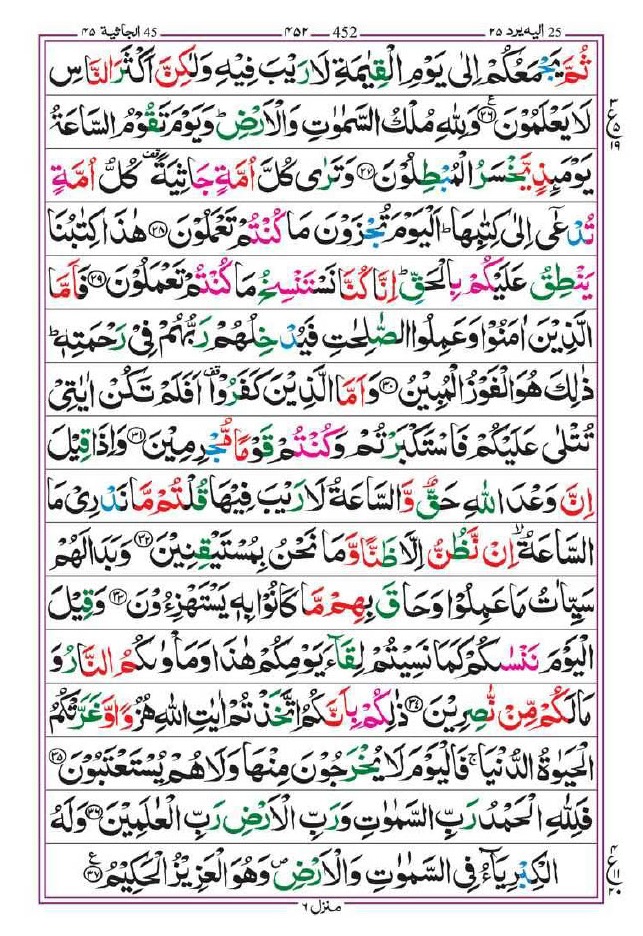 25 الیه یرد ۲۵ 452 ۴۵۲ 45 الجاثیة ۴۵
ثُمَّ یَجْمَعُكُمْ اِلٰی یَوْمِ الْقِیٰمَةِ لَا رَیْبَ فِیْهِ وَلٰكِنَّ اَكْثَرَ النَّاسِ
لَا یَعْلَمُوْنَ ﴿۲۶﴾ وَلِلّٰهِ مُلْكُ السَّمٰوٰتِ وَالْاَرْضِ ؕ وَیَوْمَ تَقُوْمُ السَّاعَةُ
یَوْمَىِٕذٍ یَّخْسَرُ الْمُبْطِلُوْنَ ﴿۲۷﴾ وَتَرٰی كُلَّ اُمَّةٍ جَاثِیَةً ۫ كُلُّ اُمَّةٍ
تُدْعٰۤی اِلٰی كِتٰبِهَا ؕ اَلْیَوْمَ تُجْزَوْنَ مَا كُنْتُمْ تَعْمَلُوْنَ ﴿۲۸﴾ هٰذَا كِتٰبُنَا
یَنْطِقُ عَلَیْكُمْ بِالْحَقِّ ؕ اِنَّا كُنَّا نَسْتَنْسِخُ مَا كُنْتُمْ تَعْمَلُوْنَ ﴿۲۹﴾ فَاَمَّا
الَّذِیْنَ اٰمَنُوْا وَعَمِلُوا الصّٰلِحٰتِ فَیُدْخِلُهُمْ رَبُّهُمْ فِیْ رَحْمَتِهٖ ؕ
ذٰلِكَ هُوَ الْفَوْزُ الْمُبِیْنُ ﴿۳۰﴾ وَاَمَّا الَّذِیْنَ كَفَرُوْا ۫ اَفَلَمْ تَكُنْ اٰیٰتِیْ
تُتْلٰی عَلَیْكُمْ فَاسْتَكْبَرْتُمْ وَكُنْتُمْ قَوْمًا مُّجْرِمِیْنَ ﴿۳۱﴾ وَاِذَا قِیْلَ
اِنَّ وَعْدَ اللّٰهِ حَقٌّ وَّالسَّاعَةُ لَا رَیْبَ فِیْهَا قُلْتُمْ مَّا نَدْرِیْ مَا
السَّاعَةُ ۙ اِنْ نَّظُنُّ اِلَّا ظَنًّا وَّمَا نَحْنُ بِمُسْتَیْقِنِیْنَ ﴿۳۲﴾ وَبَدَا لَهُمْ
سَیِّاٰتُ مَا عَمِلُوْا وَحَاقَ بِهِمْ مَّا كَانُوْا بِهٖ یَسْتَهْزِءُوْنَ ﴿۳۳﴾ وَقِیْلَ
الْیَوْمَ نَنْسٰىكُمْ كَمَا نَسِیْتُمْ لِقَآءَ یَوْمِكُمْ هٰذَا وَمَاْوٰىكُمُ النَّارُ وَ
مَا لَكُمْ مِّنْ نّٰصِرِیْنَ ﴿۳۴﴾ ذٰلِكُمْ بِاَنَّكُمُ اتَّخَذْتُمْ اٰیٰتِ اللّٰهِ هُزُوًا وَّغَرَّتْكُمُ
الْحَیٰوةُ الدُّنْیَا ۚ فَالْیَوْمَ لَا یُخْرَجُوْنَ مِنْهَا وَلَا هُمْ یُسْتَعْتَبُوْنَ ﴿۳۵﴾
فَلِلّٰهِ الْحَمْدُ رَبِّ السَّمٰوٰتِ وَرَبِّ الْاَرْضِ رَبِّ الْعٰلَمِیْنَ ﴿۳۶﴾ وَلَهُ
الْكِبْرِیَآءُ فِی السَّمٰوٰتِ وَالْاَرْضِ ۪ وَهُوَ الْعَزِیْزُ الْحَكِیْمُ ﴿۳۷﴾
۳ ع ۵ ۱۹
۴ ع ۱۱ ۲۰
منزل ۶